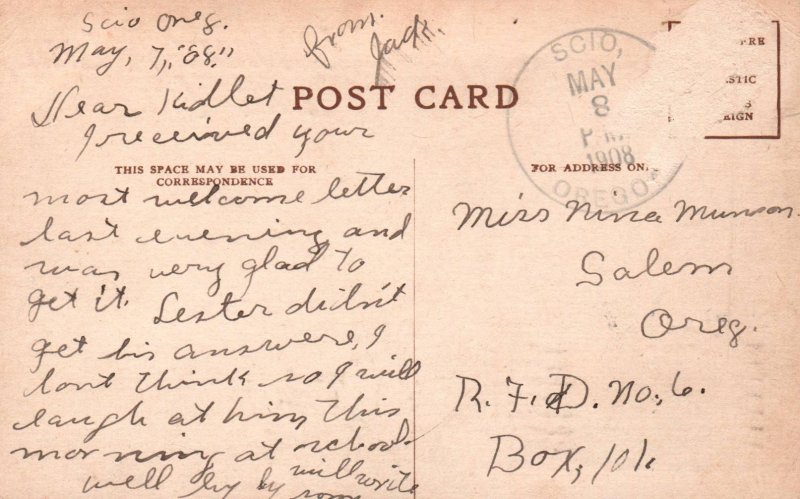 Scio Oreg.
May, 7, "08."
from.
Jack.
Dear Kidlet
I received your
most welcome letter
last evening and
was very glad to
get it. Lester didn't
get his answere, I
dont think so I will
laugh at him this
morning at school.
well by by will write
soon
POST CARD
THIS SPACE MAY BE USED FOR
CORRESPONDENCE
FOR ADDRESS ON
SCIO,
MAY
8
1908
OREGO
Miss Nina Munson.
Salem
Oreg.
R. F. D. No, 6.
Box, 101.